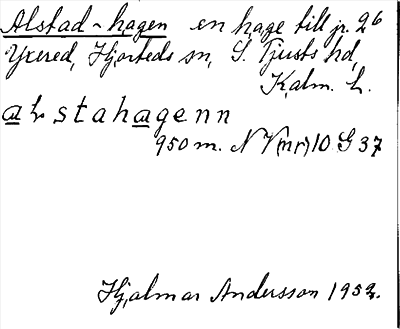 Alstad-hagen en hage till jr. 2⁶
Yxered, Hjorteds sn, S. Tjusts hd,
Kalm. L.
alstahagenn
950 m. N V (nr) 10 G 37
Hjalmar Andersson 1952.